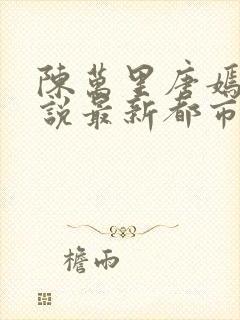 陳萬里唐嫣
說最新都市
檐雨